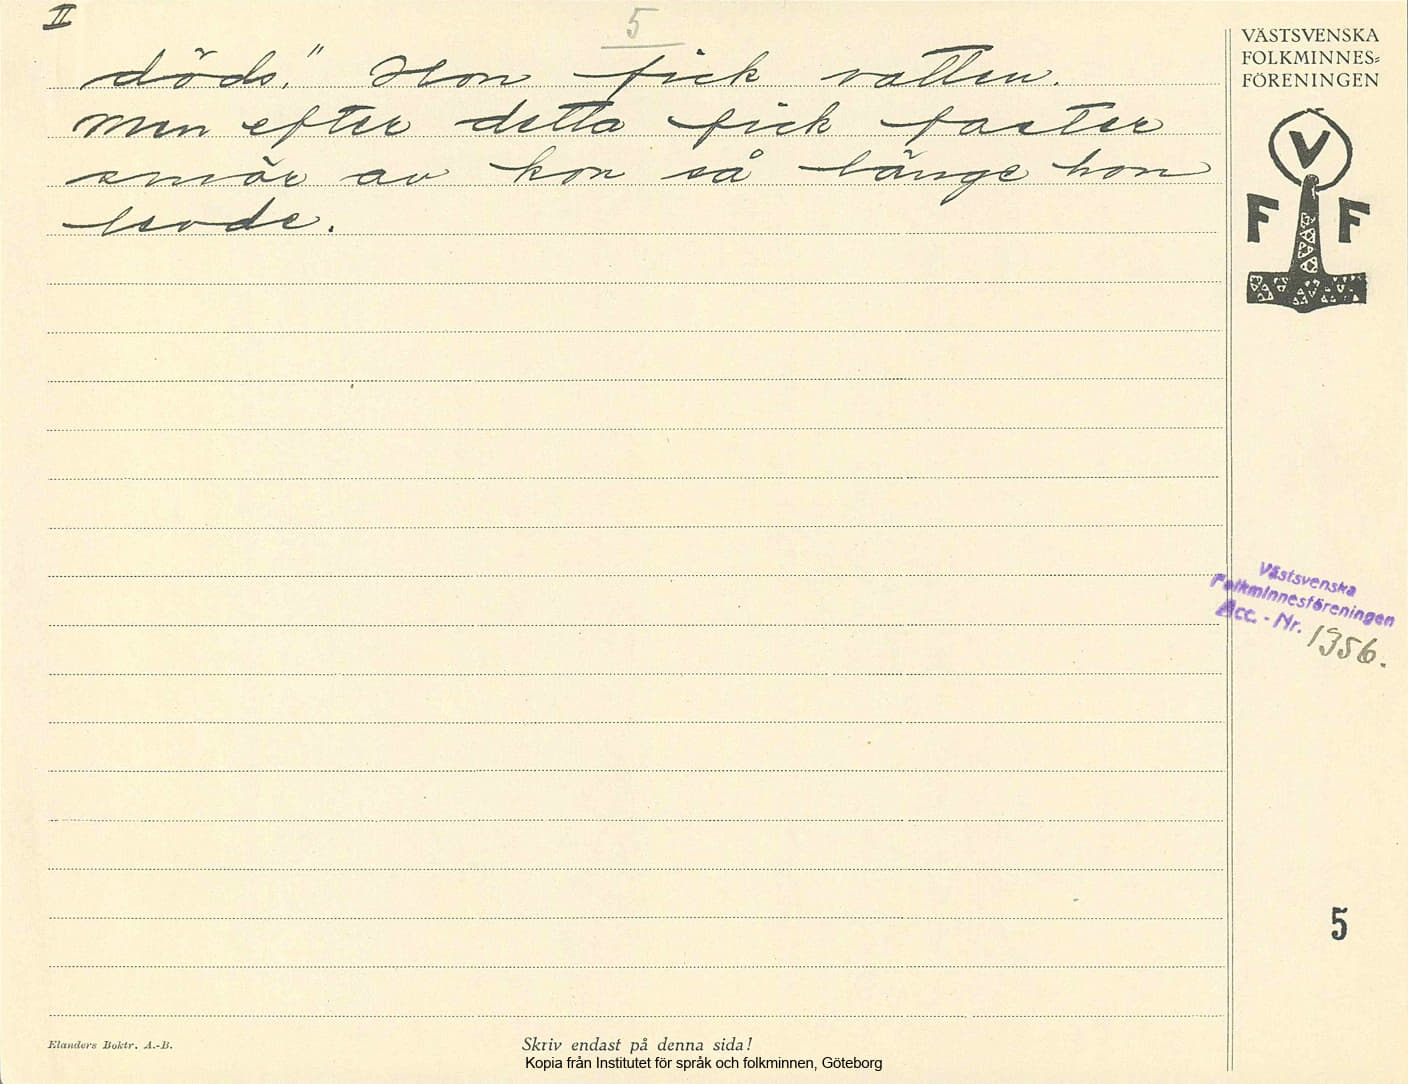 II
5
döds." Hon fick vatten.
Men efter detta fick faster
smör av kon så länge hon
levde.
VÄSTSVENSKA
FOLKMINNES=
FÖRENINGEN
V
F F
Västsvenska
Folkminnesföreningen
Acc. - Nr. 1956.
5
Elanders Boktr. A.-B.
Skriv endast på denna sida!
Kopia från Institutet för språk och folkminnen, Göteborg